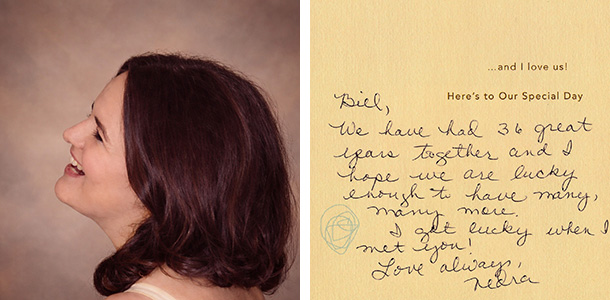 ...and I love us!
Here's to Our Special Day
Bill,
We have had 36 great
years together and I
hope we are lucky
enough to have many,
many more.
I got lucky when I
met you!
Love always,
Nedra